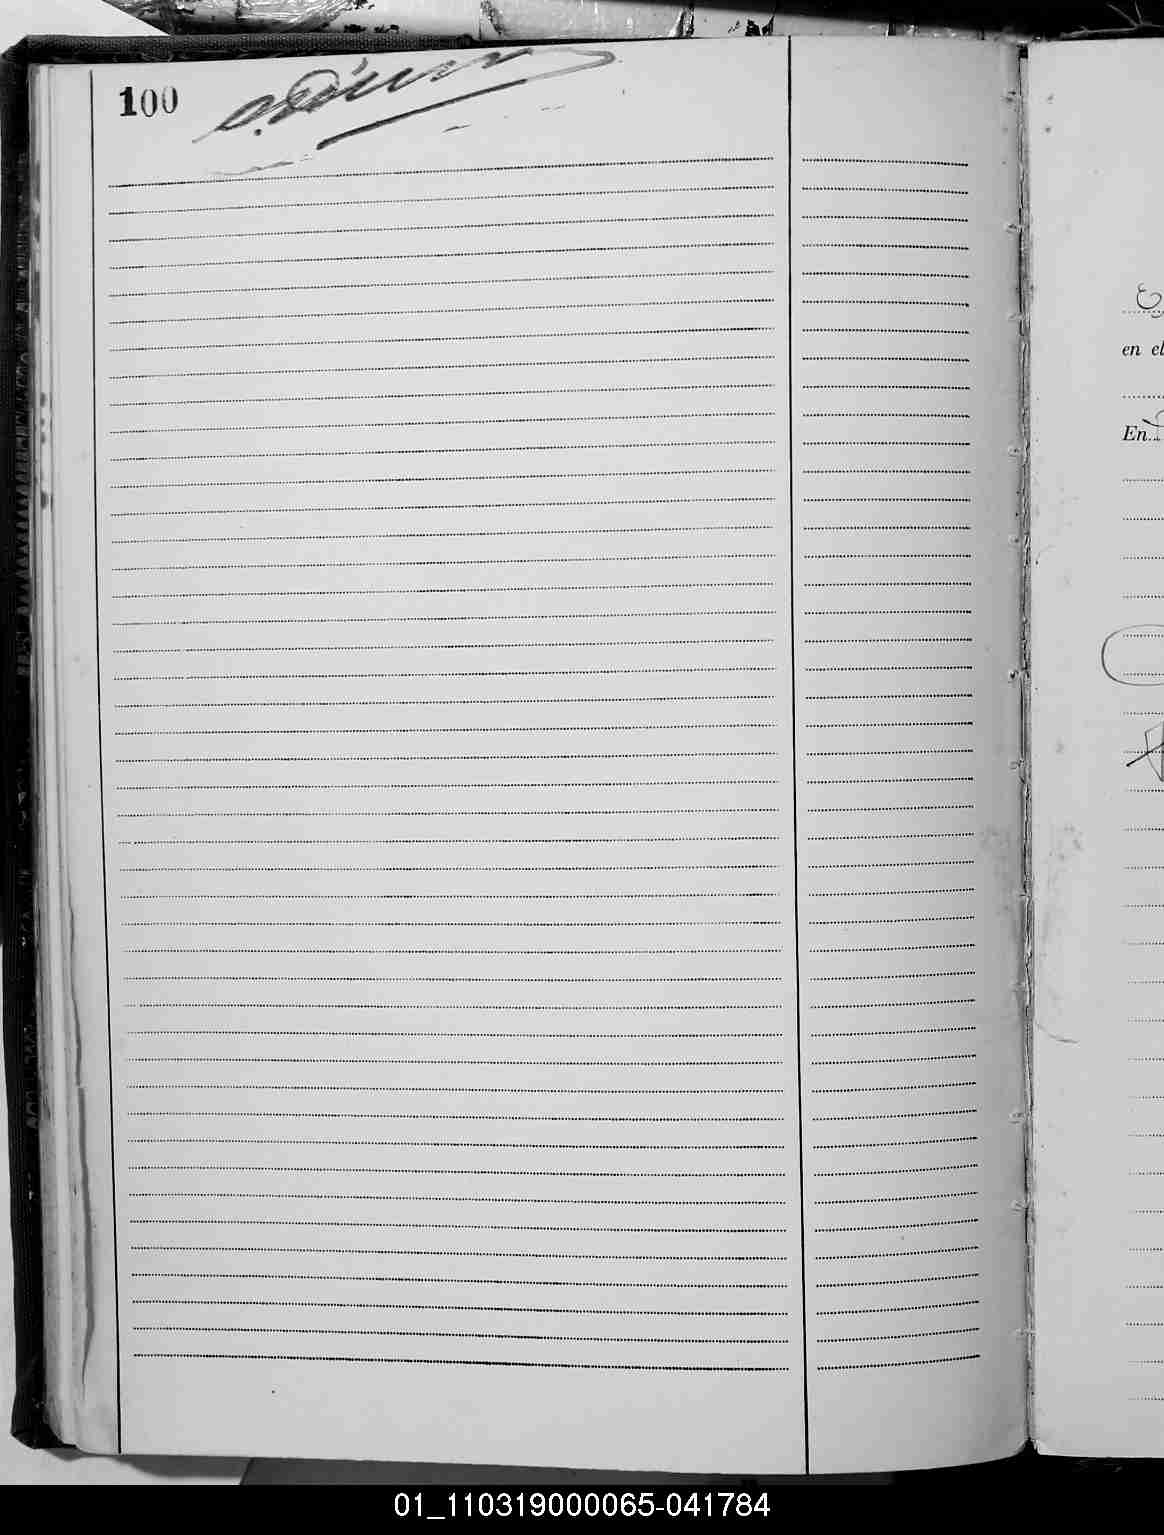 100
en el
En
01_110319000065-041784